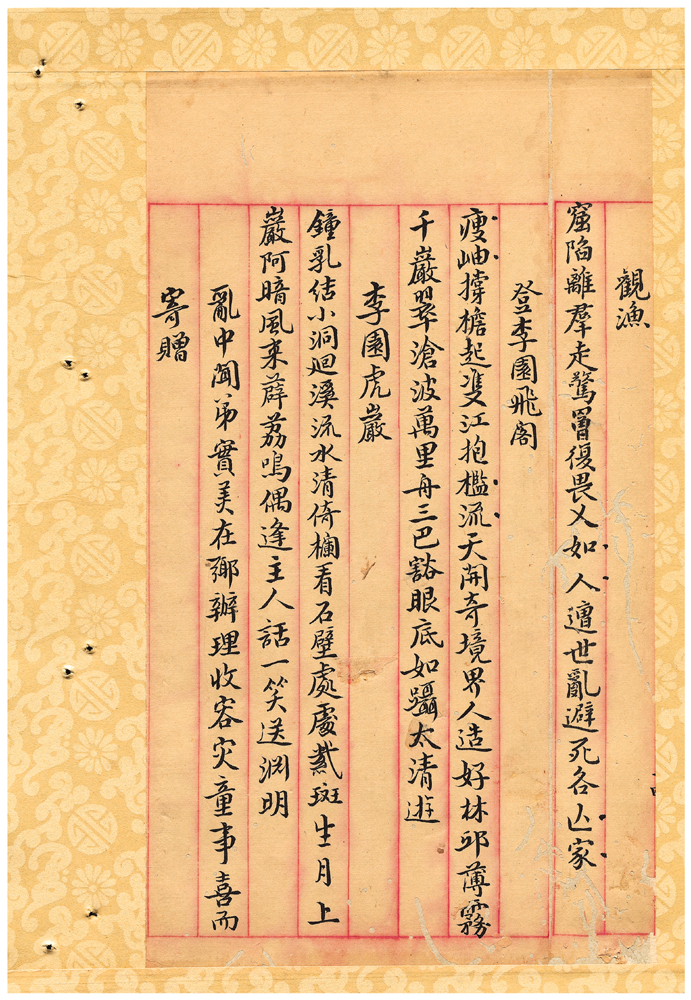 觀漁
窟陷離羣走驚罾復畏乂如人遭世亂避死各亾家
登李園飛閣
瘦岫撐檐起雙江抱檻流天開奇境界人造好林邱薄霧
千巖翠滄波萬里舟三巴豁眼底如躡太清遊
李園虎巖
鐘乳結小洞迴溪流水清倚欄看石壁處處藏斑生月上
巖阿暗風來薜荔鳴偶逢主人話一笑送淵明
亂中聞弟實美在鄉辦理收容災童事喜而
寄贈